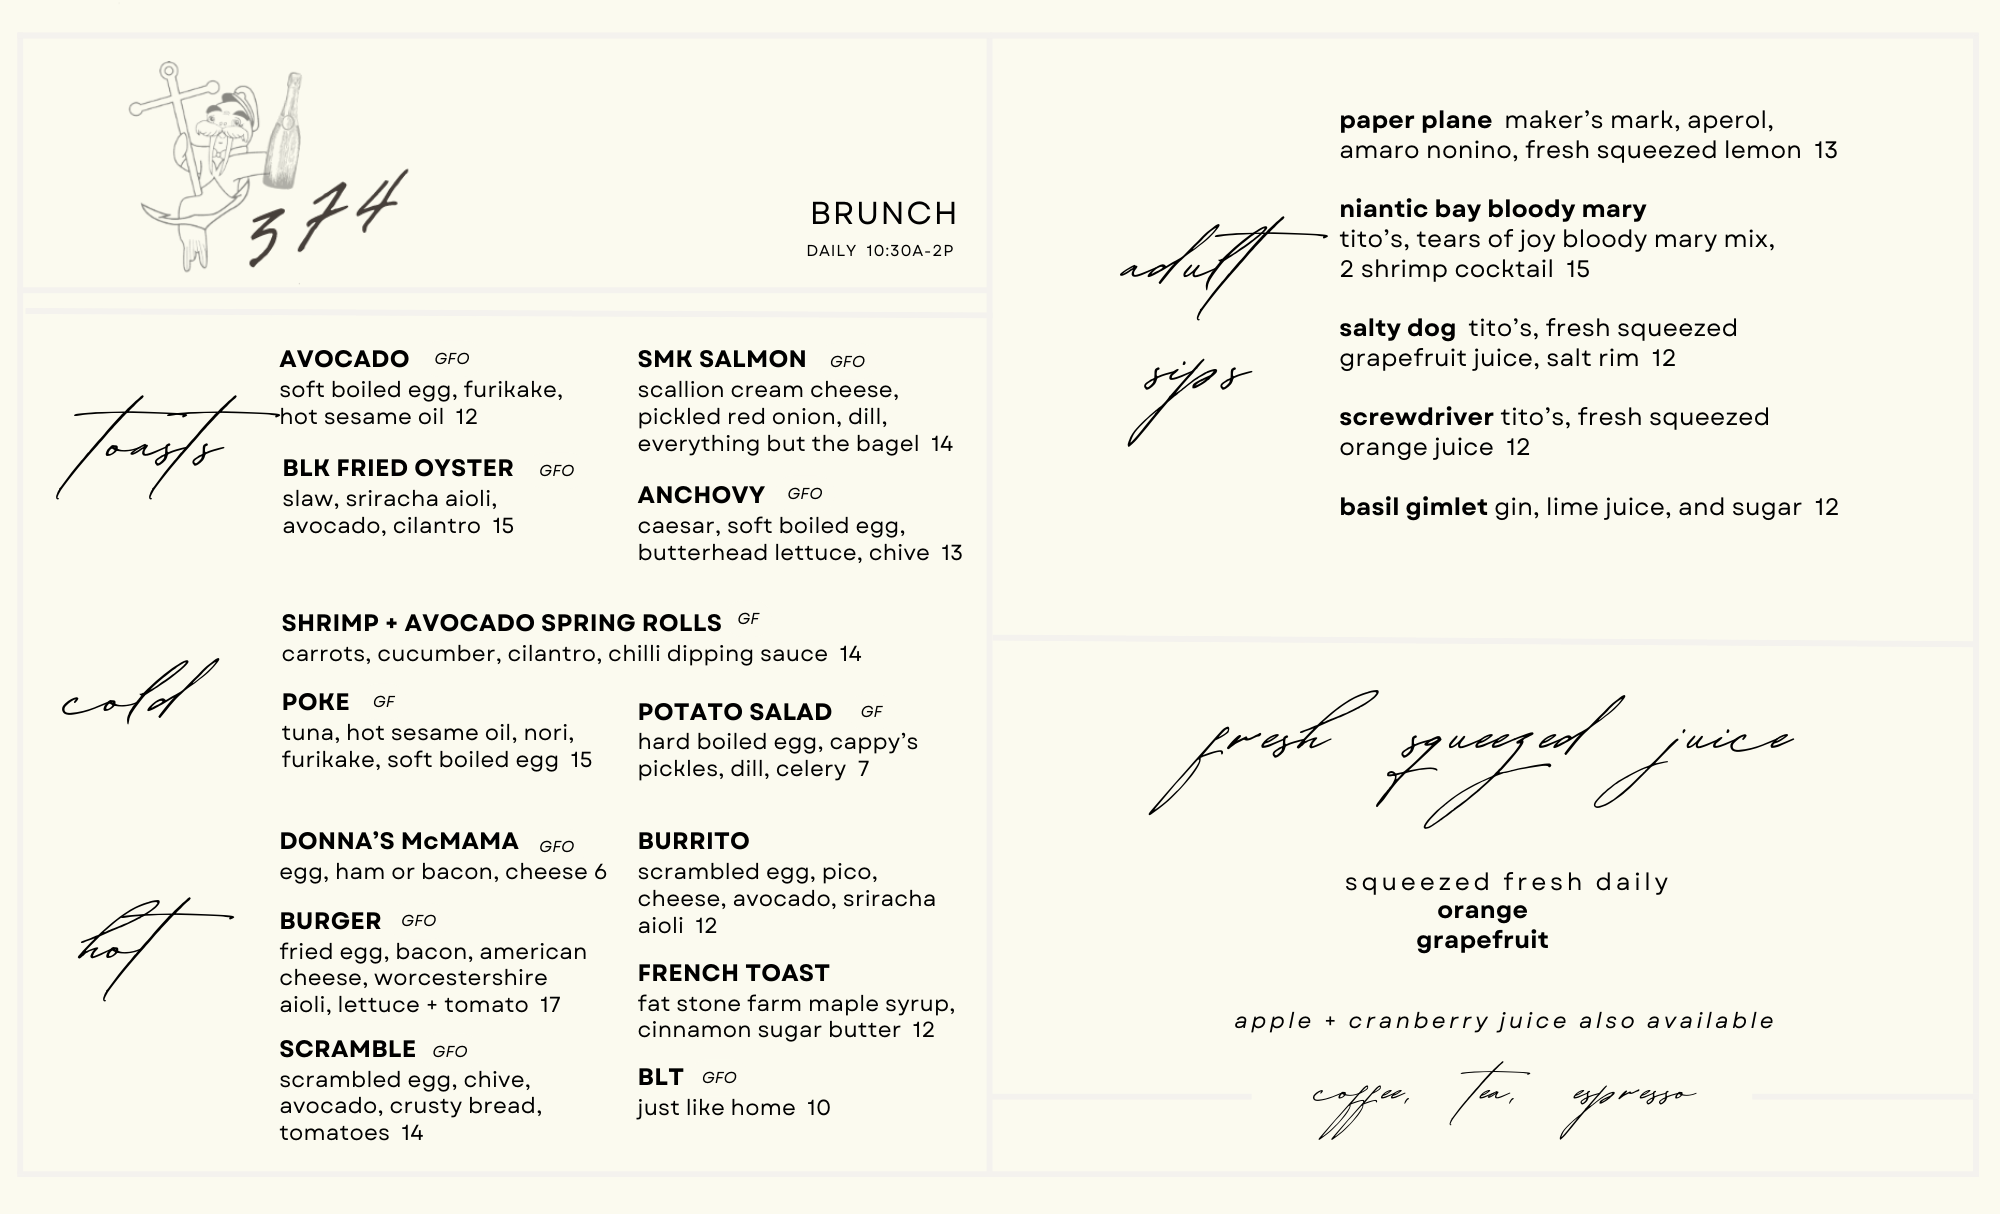 374
BRUNCH
DAILY 10:30A-2P
toasts
AVOCADO GFO
soft boiled egg, furikake,
hot sesame oil 12
BLK FRIED OYSTER GFO
slaw, sriracha aioli,
avocado, cilantro 15
SMK SALMON GFO
scallion cream cheese,
pickled red onion, dill,
everything but the bagel 14
ANCHOVY GFO
caesar, soft boiled egg,
butterhead lettuce, chive 13
cold
SHRIMP + AVOCADO SPRING ROLLS GF
carrots, cucumber, cilantro, chilli dipping sauce 14
POKE GF
tuna, hot sesame oil, nori,
furikake, soft boiled egg 15
POTATO SALAD GF
hard boiled egg, cappy’s
pickles, dill, celery 7
hot
DONNA’S McMAMA GFO
egg, ham or bacon, cheese 6
BURGER GFO
fried egg, bacon, american
cheese, worcestershire
aioli, lettuce + tomato 17
SCRAMBLE GFO
scrambled egg, chive,
avocado, crusty bread,
tomatoes 14
BURRITO
scrambled egg, pico,
cheese, avocado, sriracha
aioli 12
FRENCH TOAST
fat stone farm maple syrup,
cinnamon sugar butter 12
BLT GFO
just like home 10
adult
sips
paper plane maker’s mark, aperol,
amaro nonino, fresh squeezed lemon 13
niantic bay bloody mary
tito’s, tears of joy bloody mary mix,
2 shrimp cocktail 15
salty dog tito’s, fresh squeezed
grapefruit juice, salt rim 12
screwdriver tito’s, fresh squeezed
orange juice 12
basil gimlet gin, lime juice, and sugar 12
fresh squeezed juice
squeezed fresh daily
orange
grapefruit
apple + cranberry juice also available
coffee, tea, espresso